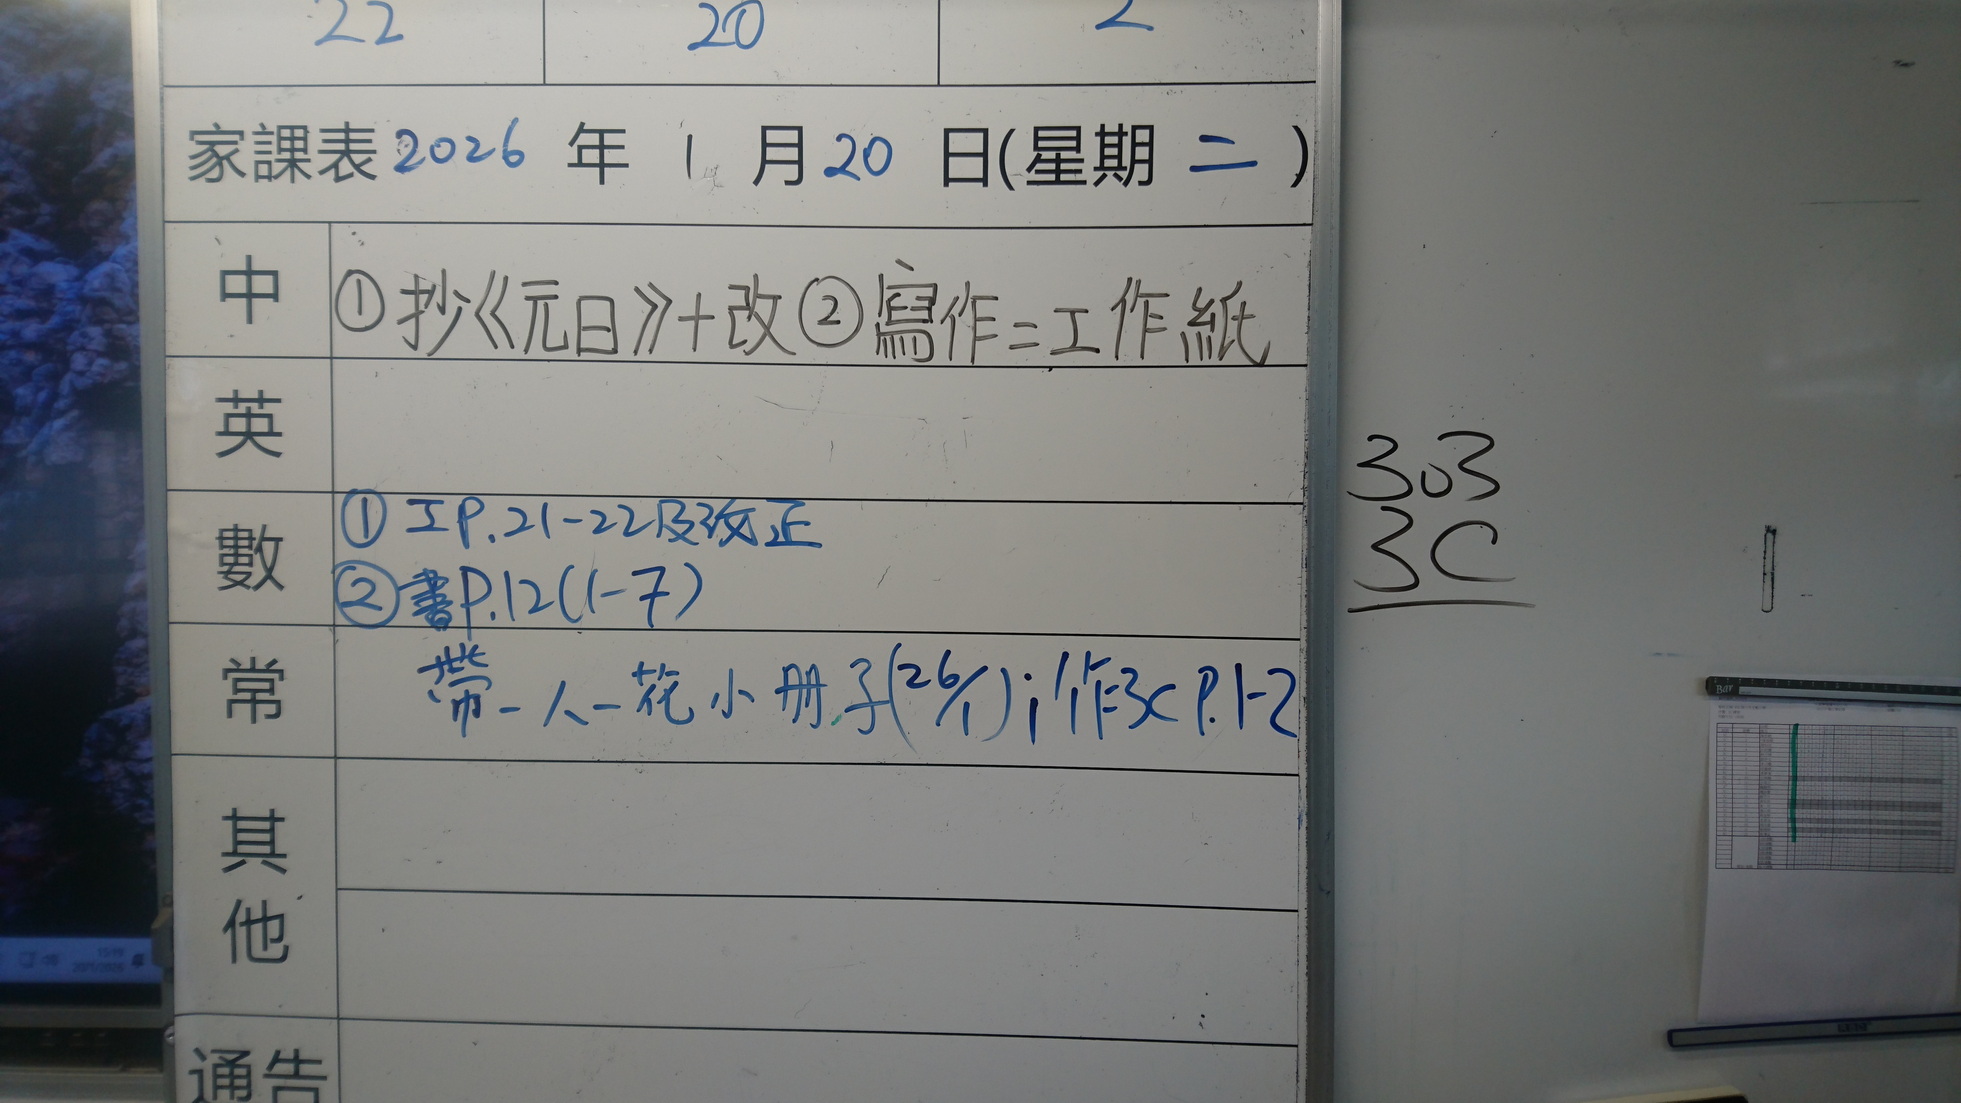 22 20 2
家課表 2026 年 1 月 20 日(星期 二 )
中 ①抄《元日》+改②寫作二工作紙
英
數 ①工P.21-22及改正
②書P.12(1-7)
常 帶一人一花小册子(26/1);作3C P.1-2
其他
通告
303
3C